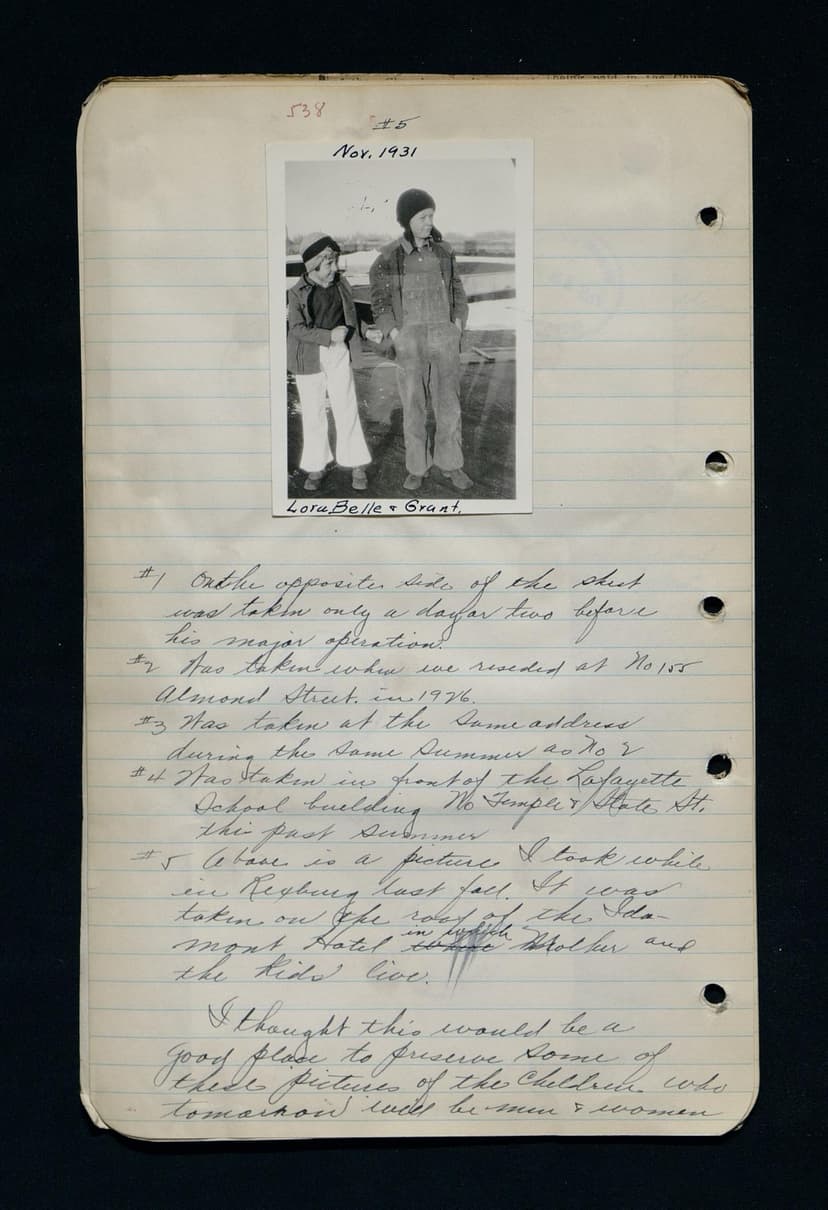 538
#5
Nov. 1931
Lora Belle & Grant.
#1 On the opposite side of the sheet
was taken only a day or two before
his major operation.
#2 Was taken when we reseded at No 155
Almond Street. in 1926.
#3 Was taken at the same address
during the same summer as No 2
#4 Was taken in front of the Lafayette
School building No Temple & State St.
this past summer
#5 Above is a picture I took while
in Rexburg last fall. It was
taken on the roof of the Ida-
mont Hotel in which Mother and
the Kids' live.
I thought this would be a
good place to preserve some of
these pictures of the children who
tomorrow will be men & women